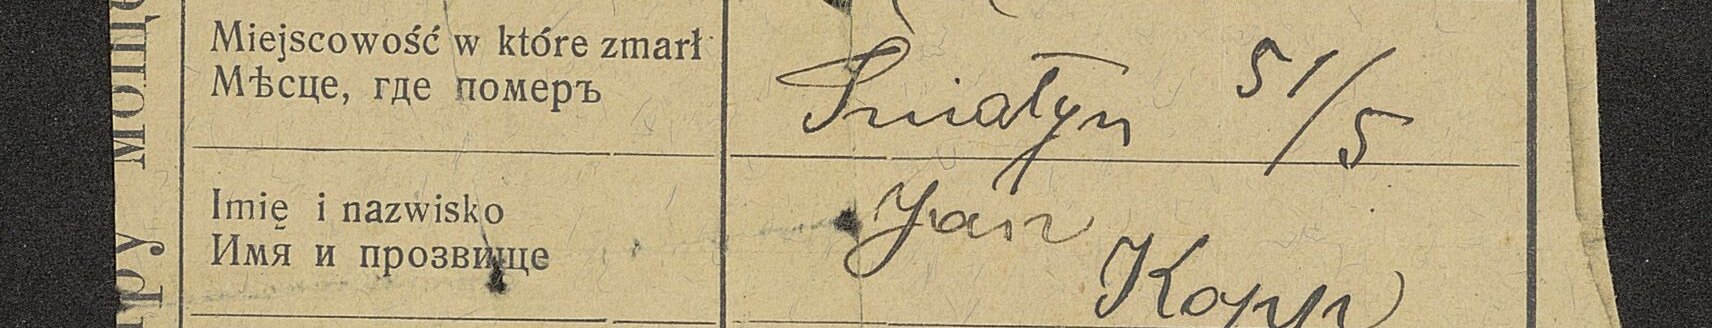 Miejscowość w które zmarł
Мѣсце, где померъ
Śniatyn 51/5
Imię i nazwisko
Имя и прозвище
Jan
Kopp